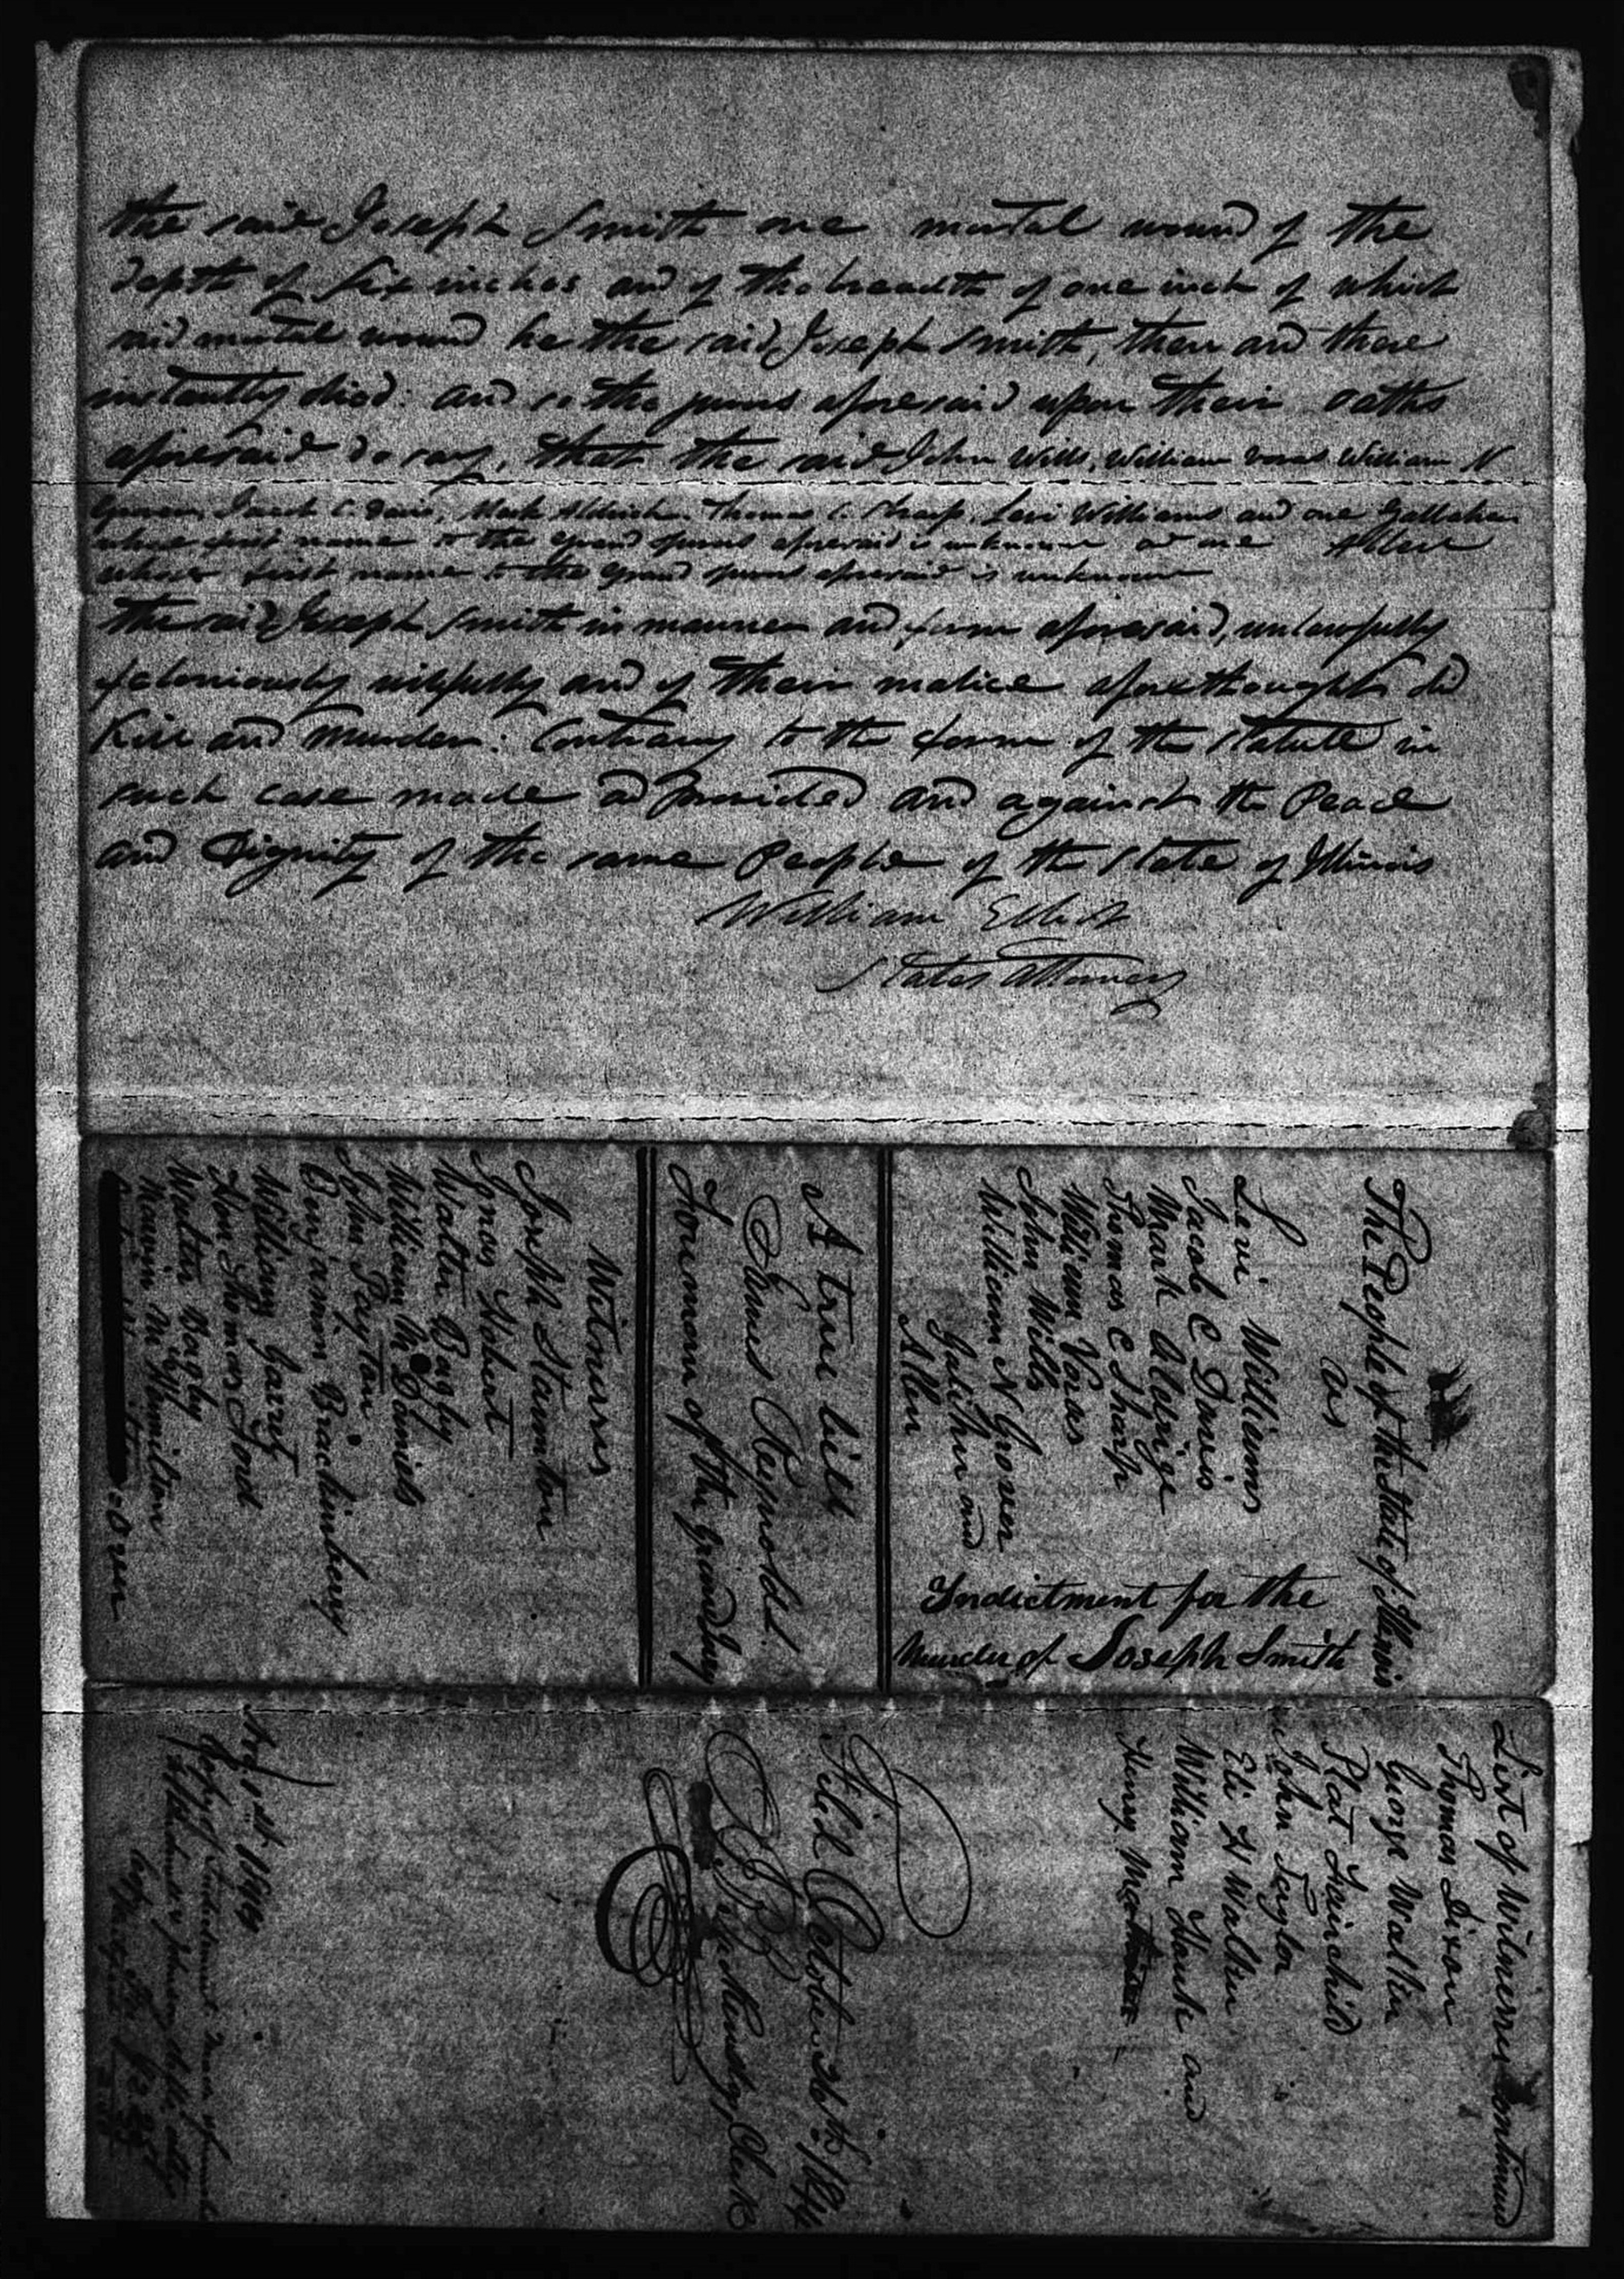 the said Joseph Smith one mortal wound of the
depth of Six inches and of the breadth of one inch of which
said mortal wound he the said Joseph Smith, then and there
instantly died: and so the jurors aforesaid upon their oaths
aforesaid do say, that the said John Wills, William Voras William N
Grover, Jacob C. Davis, Mark Aldrich, Thomas C. Sharp, Levi Williams and one Gallaher
whose first name to the grand jurors aforesaid is unknown and one Allen
whose first name to the grand jurors aforesaid is unknown
the said Joseph Smith in manner and form aforesaid, unlawfully
feloniously wilfully and of their malice aforethought did
Kill and Murder: Contrary to the form of the statute in
such case made and Provided and against the Peace
and Dignity of the same People of the State of Illinois
William Elliott
States Attorney
The People of the State of Illinois
vs
Levi Williams
Jacob C Davis
Mark Aldrige
Thomas C Sharp
William Voras
John Wills
William N Grover
Galiher and
Allen
Indictment for the
Murder of Joseph Smith
A true bill
James Reynolds.
Foreman of the Grand Jury
Witnesses
Joseph Staunton
Enos Hobert
Walter Bagby
William M Daniels
John Payton
Benjamin Brackinbery
William Jarret
Hon Thomas Ford
Walter Bagby
Marvin M Hamilton
over
List of Witnesses Continued
Thomas Dixon
George Walker
Plat Fairchild
John Taylor
Eli H Walker
William Hauk and
Henry Mathias
Filed October 26th 1844
Clerk
1844
Copy of Indictment